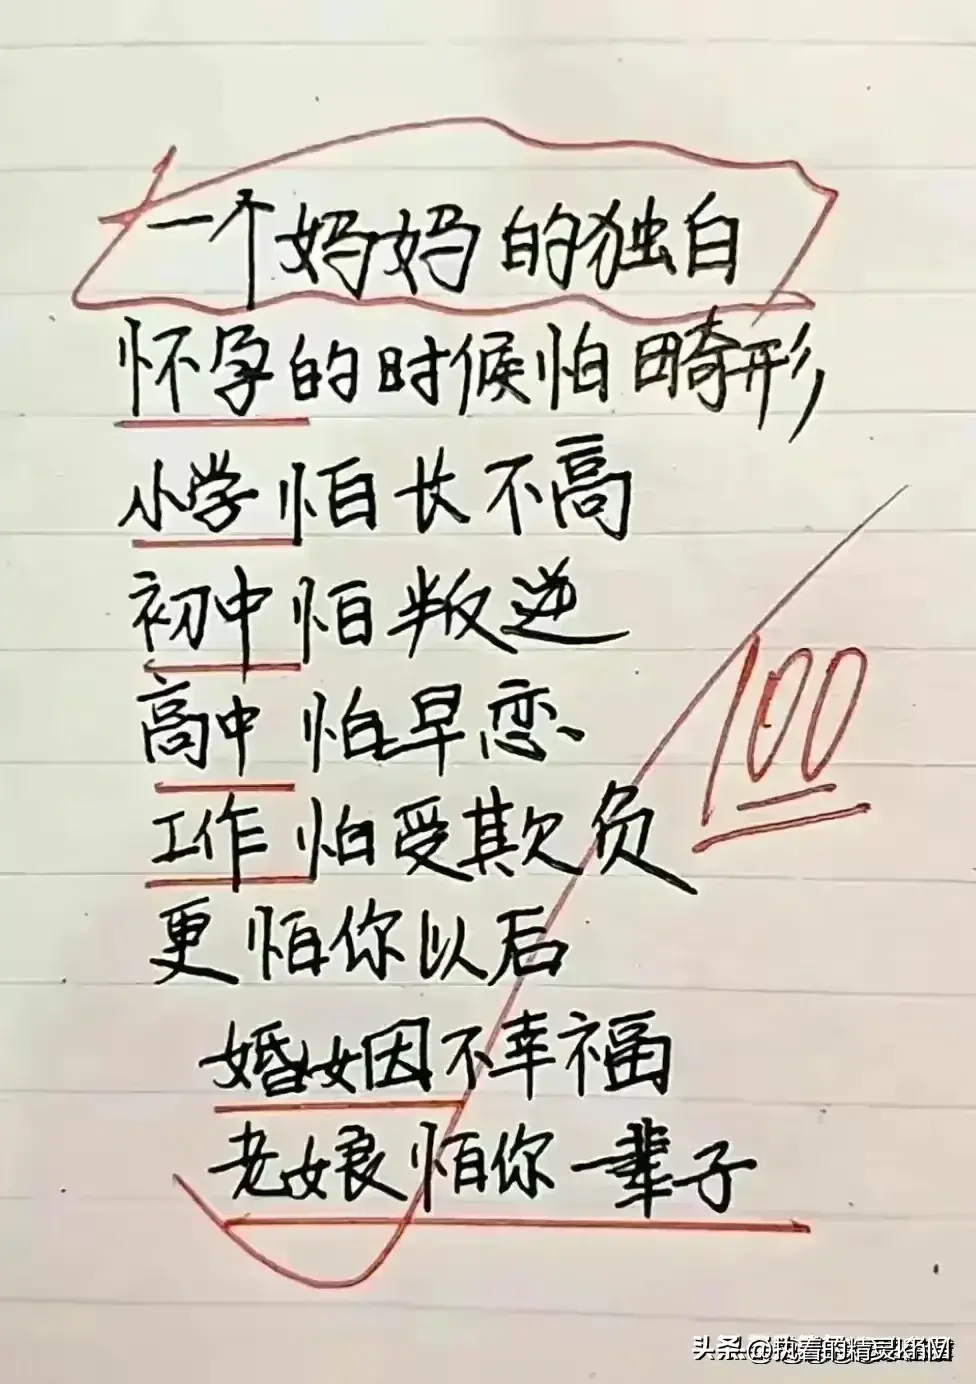 一个妈妈的独白
怀孕的时候怕畸形
小学怕长不高
初中怕叛逆
高中怕早恋
工作怕受欺负
更怕你以后
婚姻因不幸福
老娘怕你一辈子
100
头条@执着的精灵